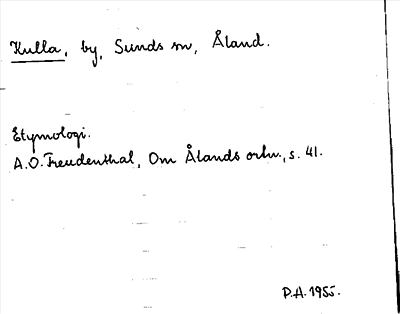 Kulla, by, Sunds sn, Åland.
Etymologi.
A.O. Freudenthal, Om Ålands ortn., s. 41.
P.A. 1955.